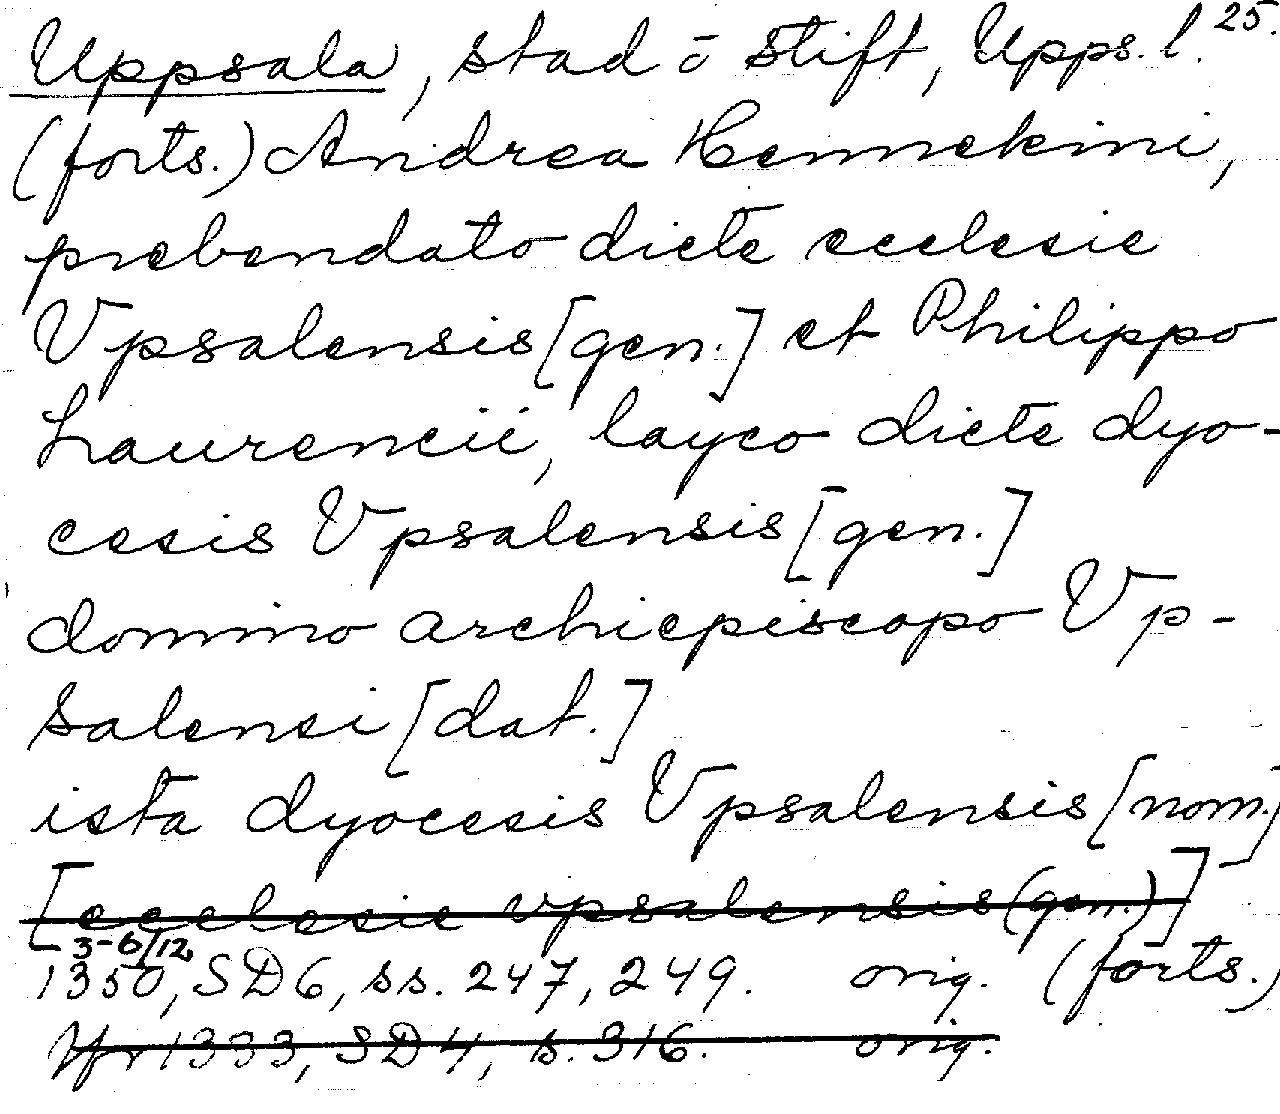 Uppsala, stad ō stift, Upps. l. 25.
(forts.) Andrea Hennekini,
prebendato dicte ecclesie
Vpsalensis [gen.] et Philippo
Laurencii, layco dicte dyo-
cesis Vpsalensis [gen.]
domino archiepiscopo Vp-
salensi [dat.]
ista dyocesis Vpsalensis [nom.]
[ecclesie vpsalensis (gen.)]
3-6/12
1350, SD6, ss. 247, 249. orig. (forts.)
Jfr 1333, SD4, s. 316. orig.